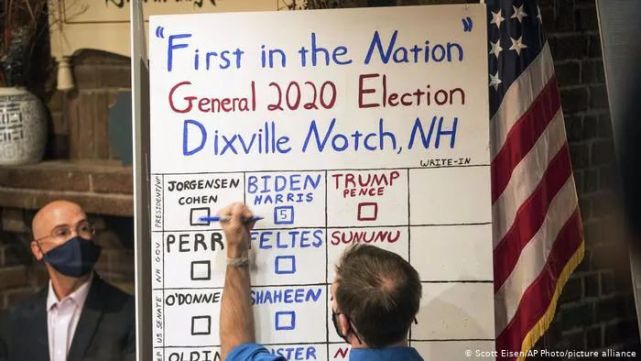 "First in the Nation"
General 2020 Election
Dixville Notch, NH
WRITE-IN
PRESIDENT/VP JORGENSEN COHEN BIDEN HARRIS 5 TRUMP PENCE
NH GOV. PERR FELTES SUNUNU
US SENATE O'DONNE SHAHEEN
© Scott Eisen/AP Photo/picture alliance